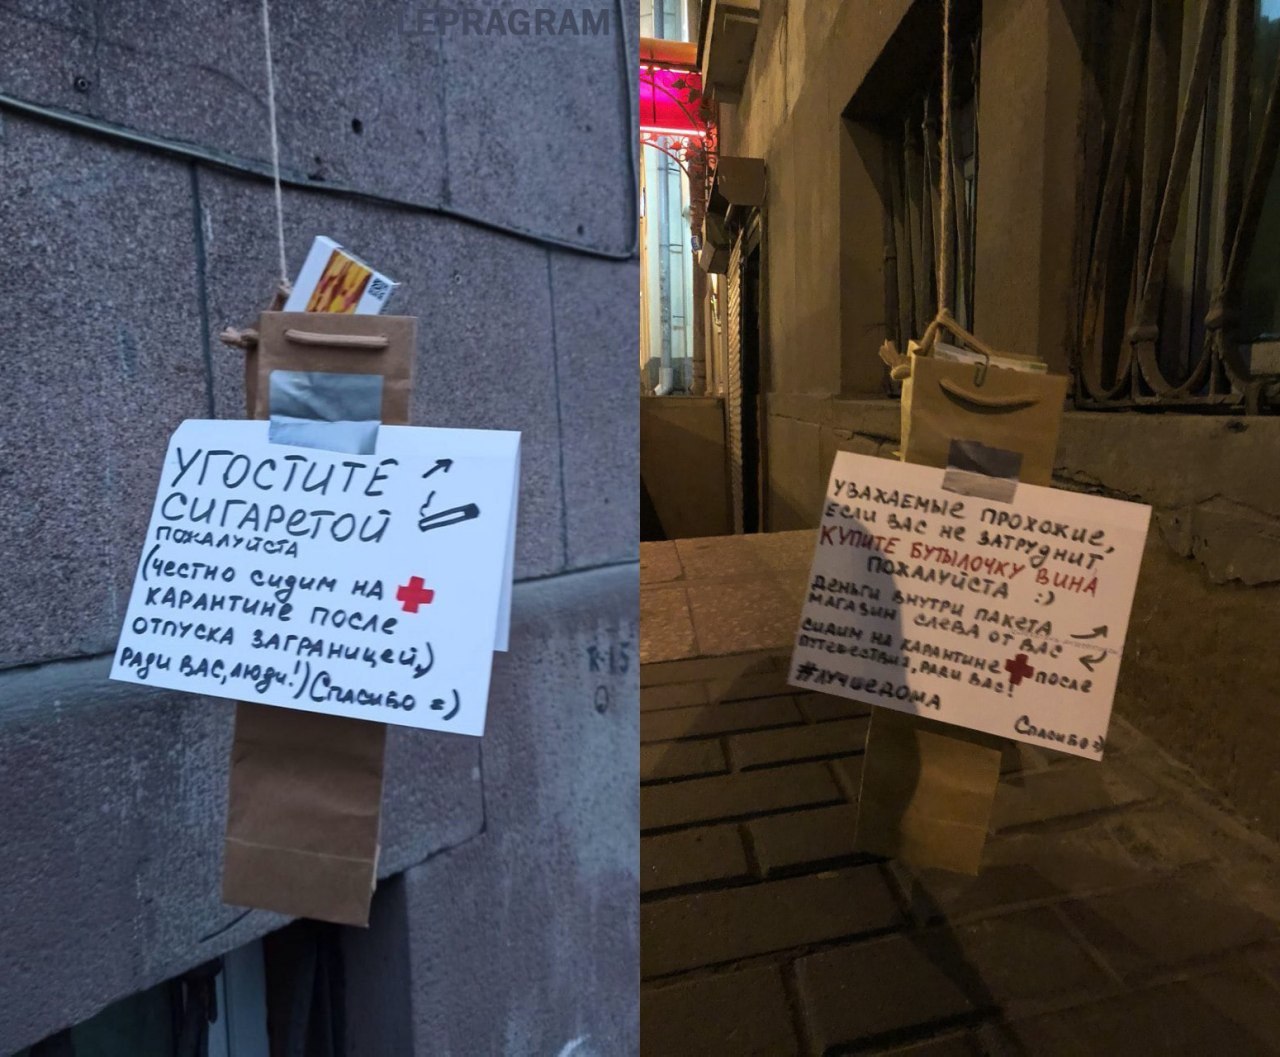 LEPRAGRAM
УГОСТИТЕ
СИГАРЕТОЙ
ПОЖАЛУЙСТА
(ЧЕСТНО СИДИМ НА
КАРАНТИНЕ ПОСЛЕ
ОТПУСКА ЗАГРАНИЦЕЙ,)
РАДИ ВАС, ЛЮДИ!) СПАСИБО =)
R-15
УВАЖАЕМЫЕ ПРОХОЖИЕ,
ЕСЛИ ВАС НЕ ЗАТРУДНИТ,
КУПИТЕ БУТЫЛОЧКУ ВИНА
ПОЖАЛУЙСТА :)
ДЕНЬГИ ВНУТРИ ПАКЕТА
МАГАЗИН СЛЕВА ОТ ВАС
СИДИМ НА КАРАНТИНЕ ПОСЛЕ
ПУТЕШЕСТВИЯ, РАДИ ВАС!
#ЛУЧШЕДОМА
СПАСИБО =)